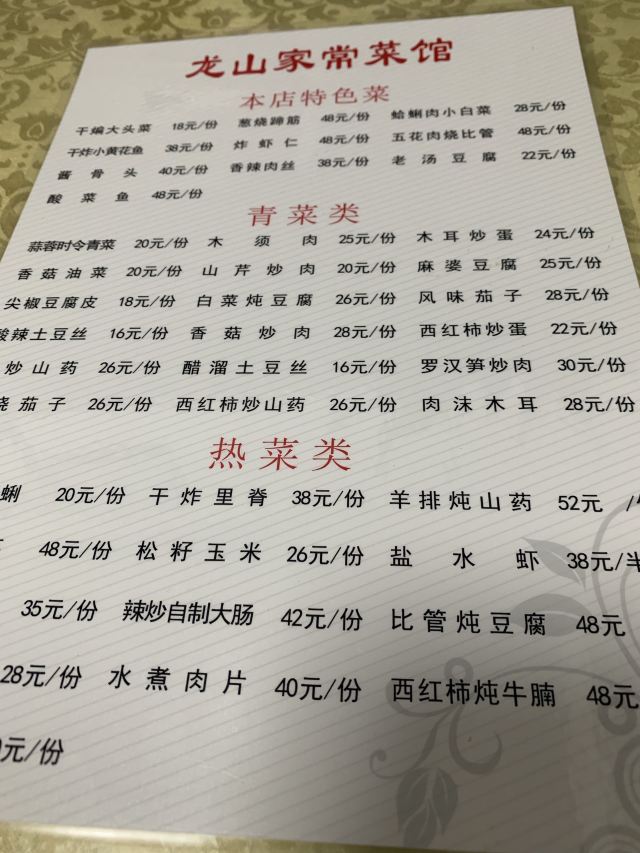 龙山家常菜馆
本店特色菜
干煸大头菜 18元/份 葱烧蹄筋 48元/份 蛤蜊肉小白菜 28元/份
干炸小黄花鱼 38元/份 炸虾仁 48元/份 五花肉烧比管 48元/份
酱骨头 40元/份 香辣肉丝 38元/份 老汤豆腐 22元/份
酸菜鱼 48元/份
青菜类
蒜蓉时令青菜 20元/份 木须肉 25元/份 木耳炒蛋 24元/份
香菇油菜 20元/份 山芹炒肉 20元/份 麻婆豆腐 25元/份
尖椒豆腐皮 18元/份 白菜炖豆腐 26元/份 风味茄子 28元/份
酸辣土豆丝 16元/份 香菇炒肉 28元/份 西红柿炒蛋 22元/份
炒山药 26元/份 醋溜土豆丝 16元/份 罗汉笋炒肉 30元/份
烧茄子 26元/份 西红柿炒山药 26元/份 肉沫木耳 28元/份
热菜类
蜊 20元/份 干炸里脊 38元/份 羊排炖山药 52元/
48元/份 松籽玉米 26元/份 盐水虾 38元/半
35元/份 辣炒自制大肠 42元/份 比管炖豆腐 48元
28元/份 水煮肉片 40元/份 西红柿炖牛腩 48元
元/份